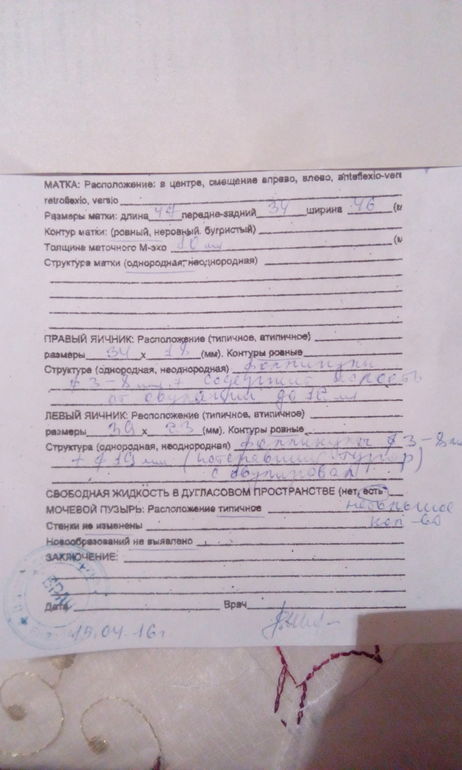 МАТКА: Расположение: в центре, смещение вправо, влево, anteflexio-vers
retroflexio, versio
Размеры матки: длина 44 передне-задний 34 ширина 46 (м
Контур матки: (ровный, неровный, бугристый)
Толщина маточного М-эхо 10 мм (м
Структура матки (однородная, неоднородная)
ПРАВЫЙ ЯИЧНИК: Расположение (типичное, атипичное)
размеры 34 х 18 (мм). Контуры ровные
Структура (однородная, неоднородная) фолликулы
ф 3-8 мм + содержит полость
от овуляции до 12 мм
ЛЕВЫЙ ЯИЧНИК: Расположение (типичное, атипичное)
размеры 39 х 23 (мм). Контуры ровные
Структура (однородная, неоднородная) фолликулы ф 3-8 мм
+ ф 19 мм (потерявший тургор)
СВОБОДНАЯ ЖИДКОСТЬ В ДУГЛАСОВОМ ПРОСТРАНСТВЕ (нет, есть)
небольшое
кол-во
МОЧЕВОЙ ПУЗЫРЬ: Расположение типичное
Стенки не изменены
Новообразований не выявлено
ЗАКЛЮЧЕНИЕ:
Дата Врач
15.04.16г.